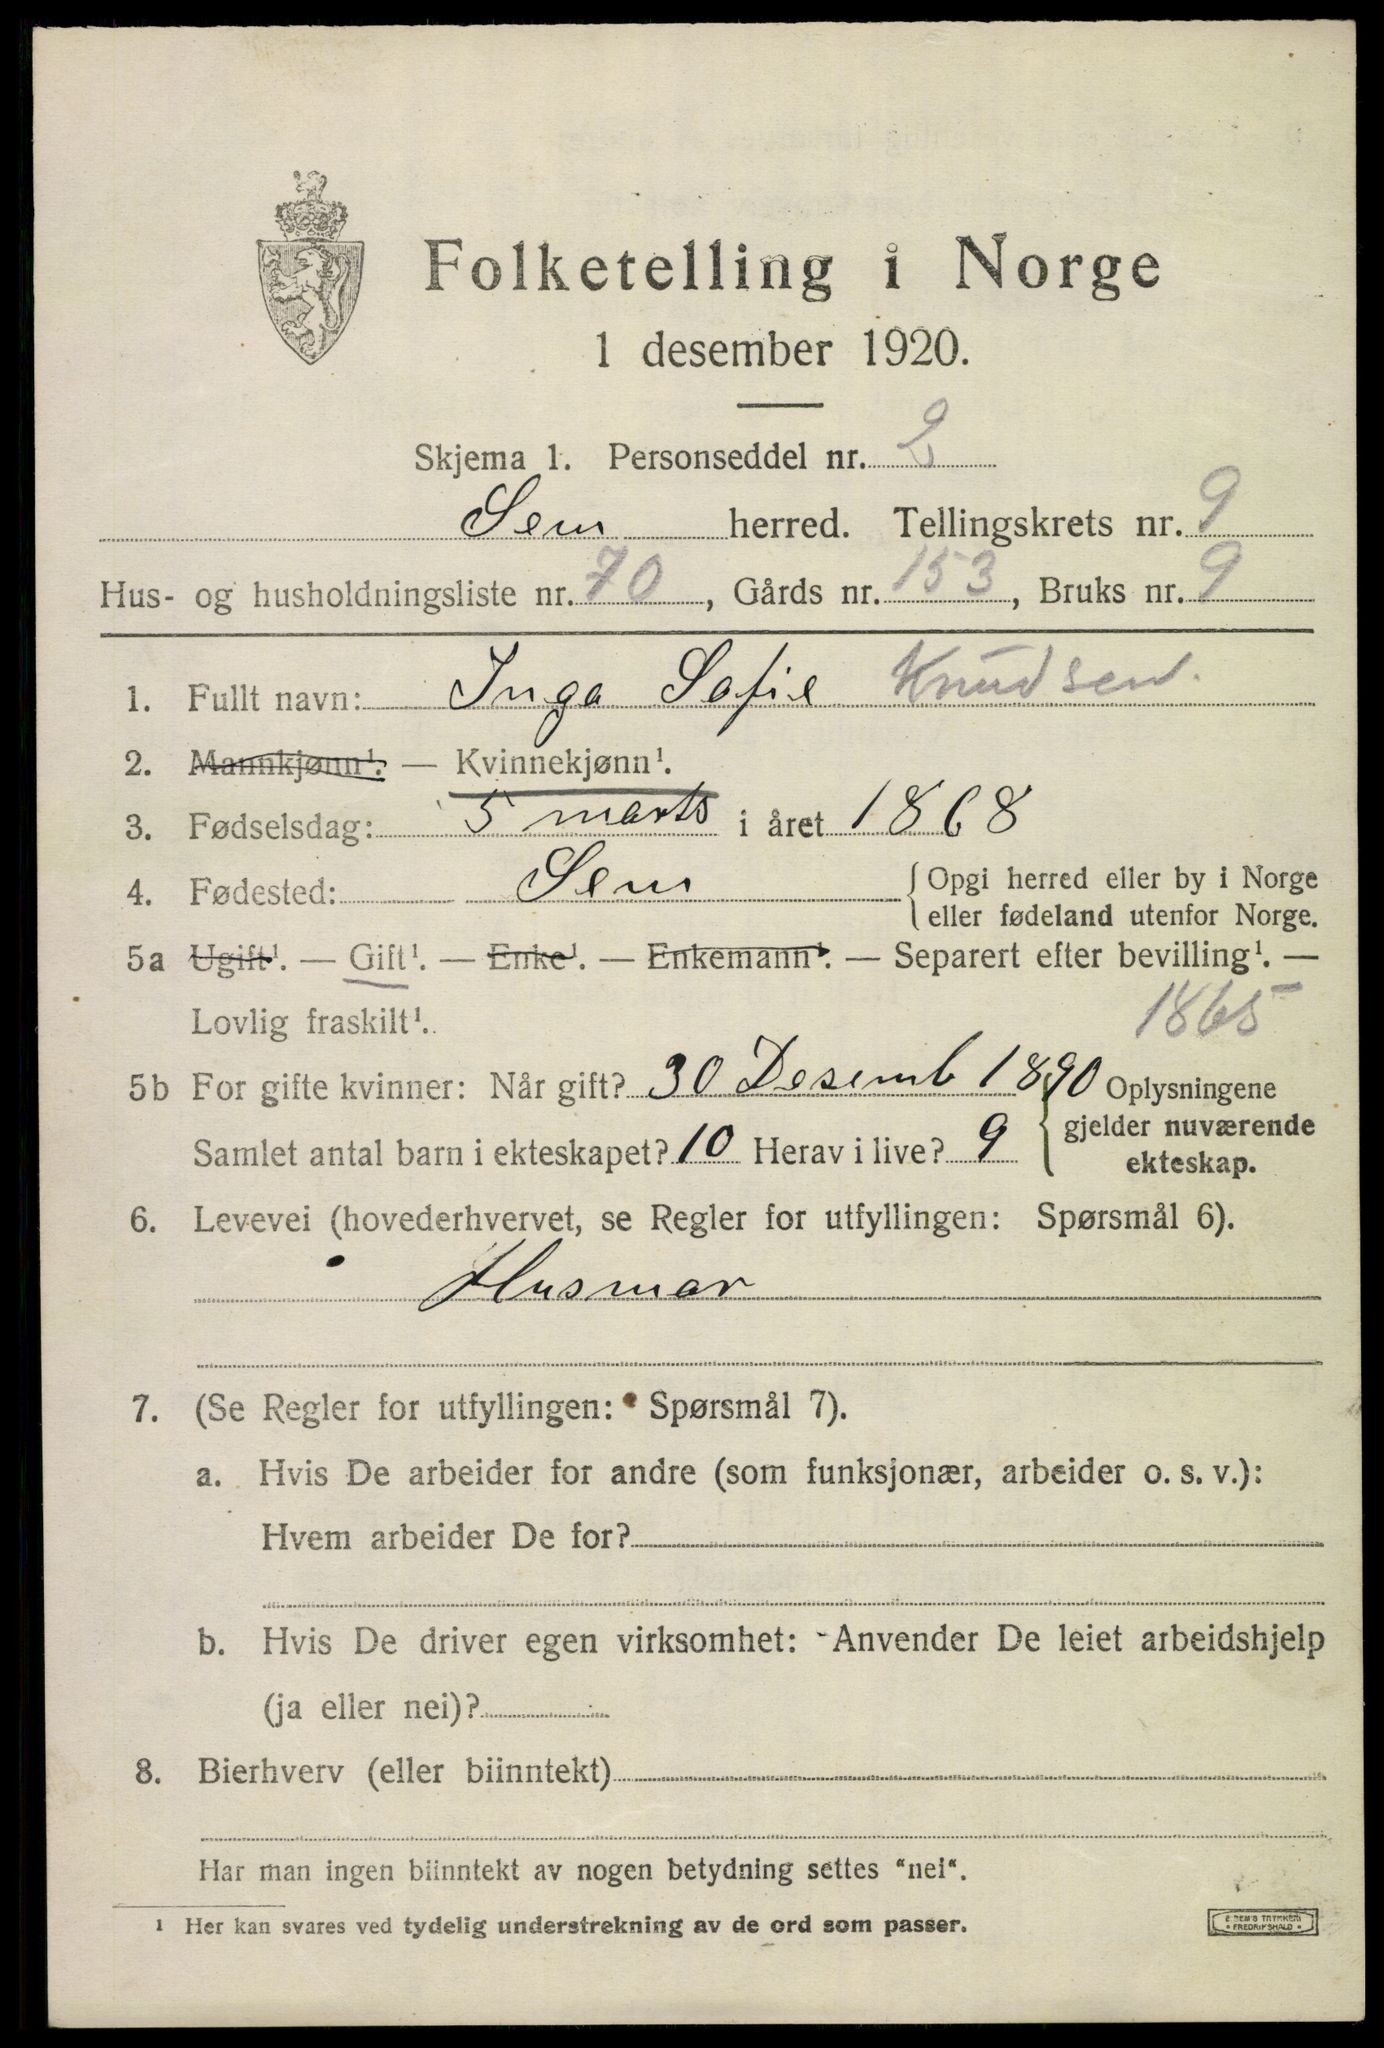 Folketelling i Norge
1 desember 1920.
Skjema 1. Personseddel nr. 2
Sem herred. Tellingskrets nr. 9
Hus- og husholdningsliste nr. 70, Gårds nr. 153, Bruks nr. 9
1. Fullt navn: Inga Sofie Knudsen.
2. Mannkjønn¹. — Kvinnekjønn¹.
3. Fødselsdag: 5 marts i året 1868
4. Fødested: Sem {Opgi herred eller by i Norge
eller fødeland utenfor Norge.
5a Ugift¹. — Gift¹. — Enke¹. — Enkemann¹. — Separert efter bevilling¹. —
Lovlig fraskilt¹. 1865
5b For gifte kvinner: Når gift? 30 Desemb 1890 {Oplysningene
gjelder nuværende
Samlet antal barn i ekteskapet? 10 Herav i live? 9 ekteskap.
6. Levevei (hovederhvervet, se Regler for utfyllingen: Spørsmål 6).
Husmor
7. (Se Regler for utfyllingen: Spørsmål 7).
a. Hvis De arbeider for andre (som funksjonær, arbeider o. s. v.):
Hvem arbeider De for?
b. Hvis De driver egen virksomhet: Anvender De leiet arbeidshjelp
(ja eller nei)?
8. Bierhverv (eller biinntekt)
Har man ingen biinntekt av nogen betydning settes "nei".
¹ Her kan svares ved tydelig understrekning av de ord som passer.
E. SEM'S TRYKKERI
• FREDRIKSHALD •